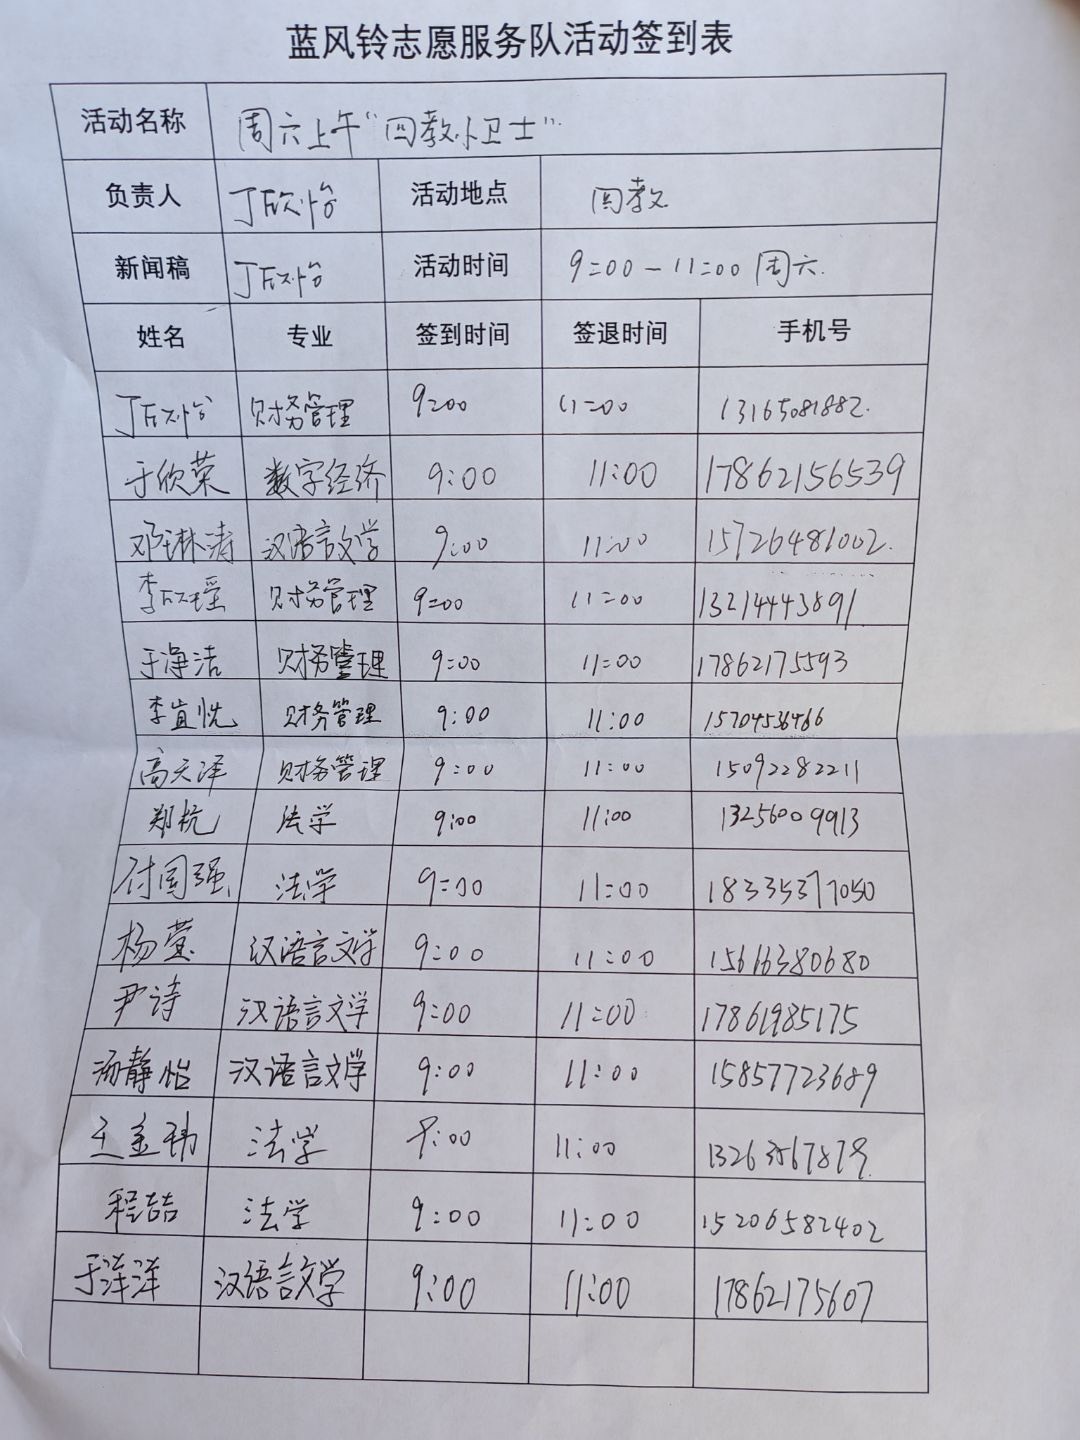 蓝风铃志愿服务队活动签到表
活动名称 周六上午"四教小卫士"
负责人 丁欣怡 活动地点 四教
新闻稿 丁欣怡 活动时间 9:00-11:00 周六.
姓名 专业 签到时间 签退时间 手机号
丁欣怡 财务管理 9:00 11:00 13165081882.
于欣荣 数字经济 9:00 11:00 17862156539
邓琳涛 汉语言文学 9:00 11:00 15726481002.
李欣瑶 财务管理 9:00 11:00 13214443891
于净洁 财务管理 9:00 11:00 17862175593
李宜悦 财务管理 9:00 11:00 15704536466
高天泽 财务管理 9:00 11:00 15092282211
郑杭 法学 9:00 11:00 13256009913
付国强 法学 9:00 11:00 18335377050
杨萱 汉语言文学 9:00 11:00 15616380680
尹诗 汉语言文学 9:00 11:00 17861985175
汤静怡 汉语言文学 9:00 11:00 15857723689
王金玮 法学 9:00 11:00
程喆 法学 9:00 11:00 15206582402
于洋洋 汉语言文学 9:00 11:00 17862175607